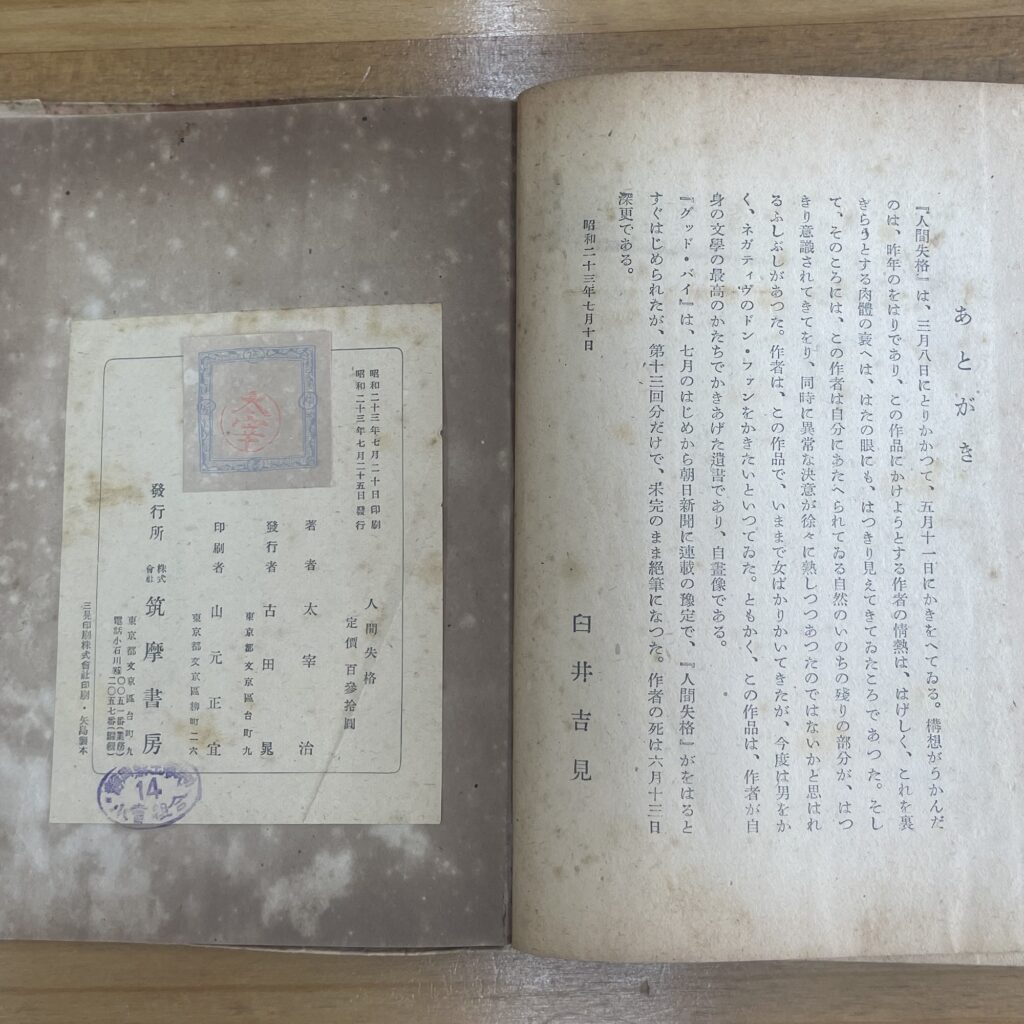 あとがき
『人間失格』は、三月八日にとりかかつて、五月十一日にかきをへてゐる。構想がうかんだ
のは、昨年のをはりであり、この作品にかけようとする作者の情熱は、はげしく、これを裏
ぎらうとする肉體の衰へは、はたの眼にも、はつきり見えてきてゐたころであつた。そし
て、そのころには、この作者は自分にあたへられてゐる自然のいのちの殘りの部分が、はつ
きり意識されてきてをり、同時に異常な決意が徐々に熟しつつあつたのではないかと思はれ
るふしぶしがあつた。作者は、この作品で、いままで女ばかりかいてきたが、今度は男をか
く、ネガティヴのドン・ファンをかきたいといつてゐた。ともかく、この作品は、作者が自
身の文學の最高のかたちでかきあげた遺書であり、自畫像である。
『グッド・バイ』は、七月のはじめから朝日新聞に連載の豫定で、『人間失格』がをはると
すぐはじめられたが、第十三回分だけで、未完のまま絶筆になつた。作者の死は六月十三日
深更である。
昭和二十三年七月十日
臼井吉見
昭和二十三年七月二十日印刷
昭和二十三年七月二十五日發行
人間失格
定價 百參拾圓
著者 太宰治
發行者 古田晁
東京都文京區台町九
印刷者 山元正宜
東京都文京區柳町二六
發行所 株式會社 筑摩書房
東京都文京區台町九
三晃印刷株式會社印刷・矢島製本
太宰
14